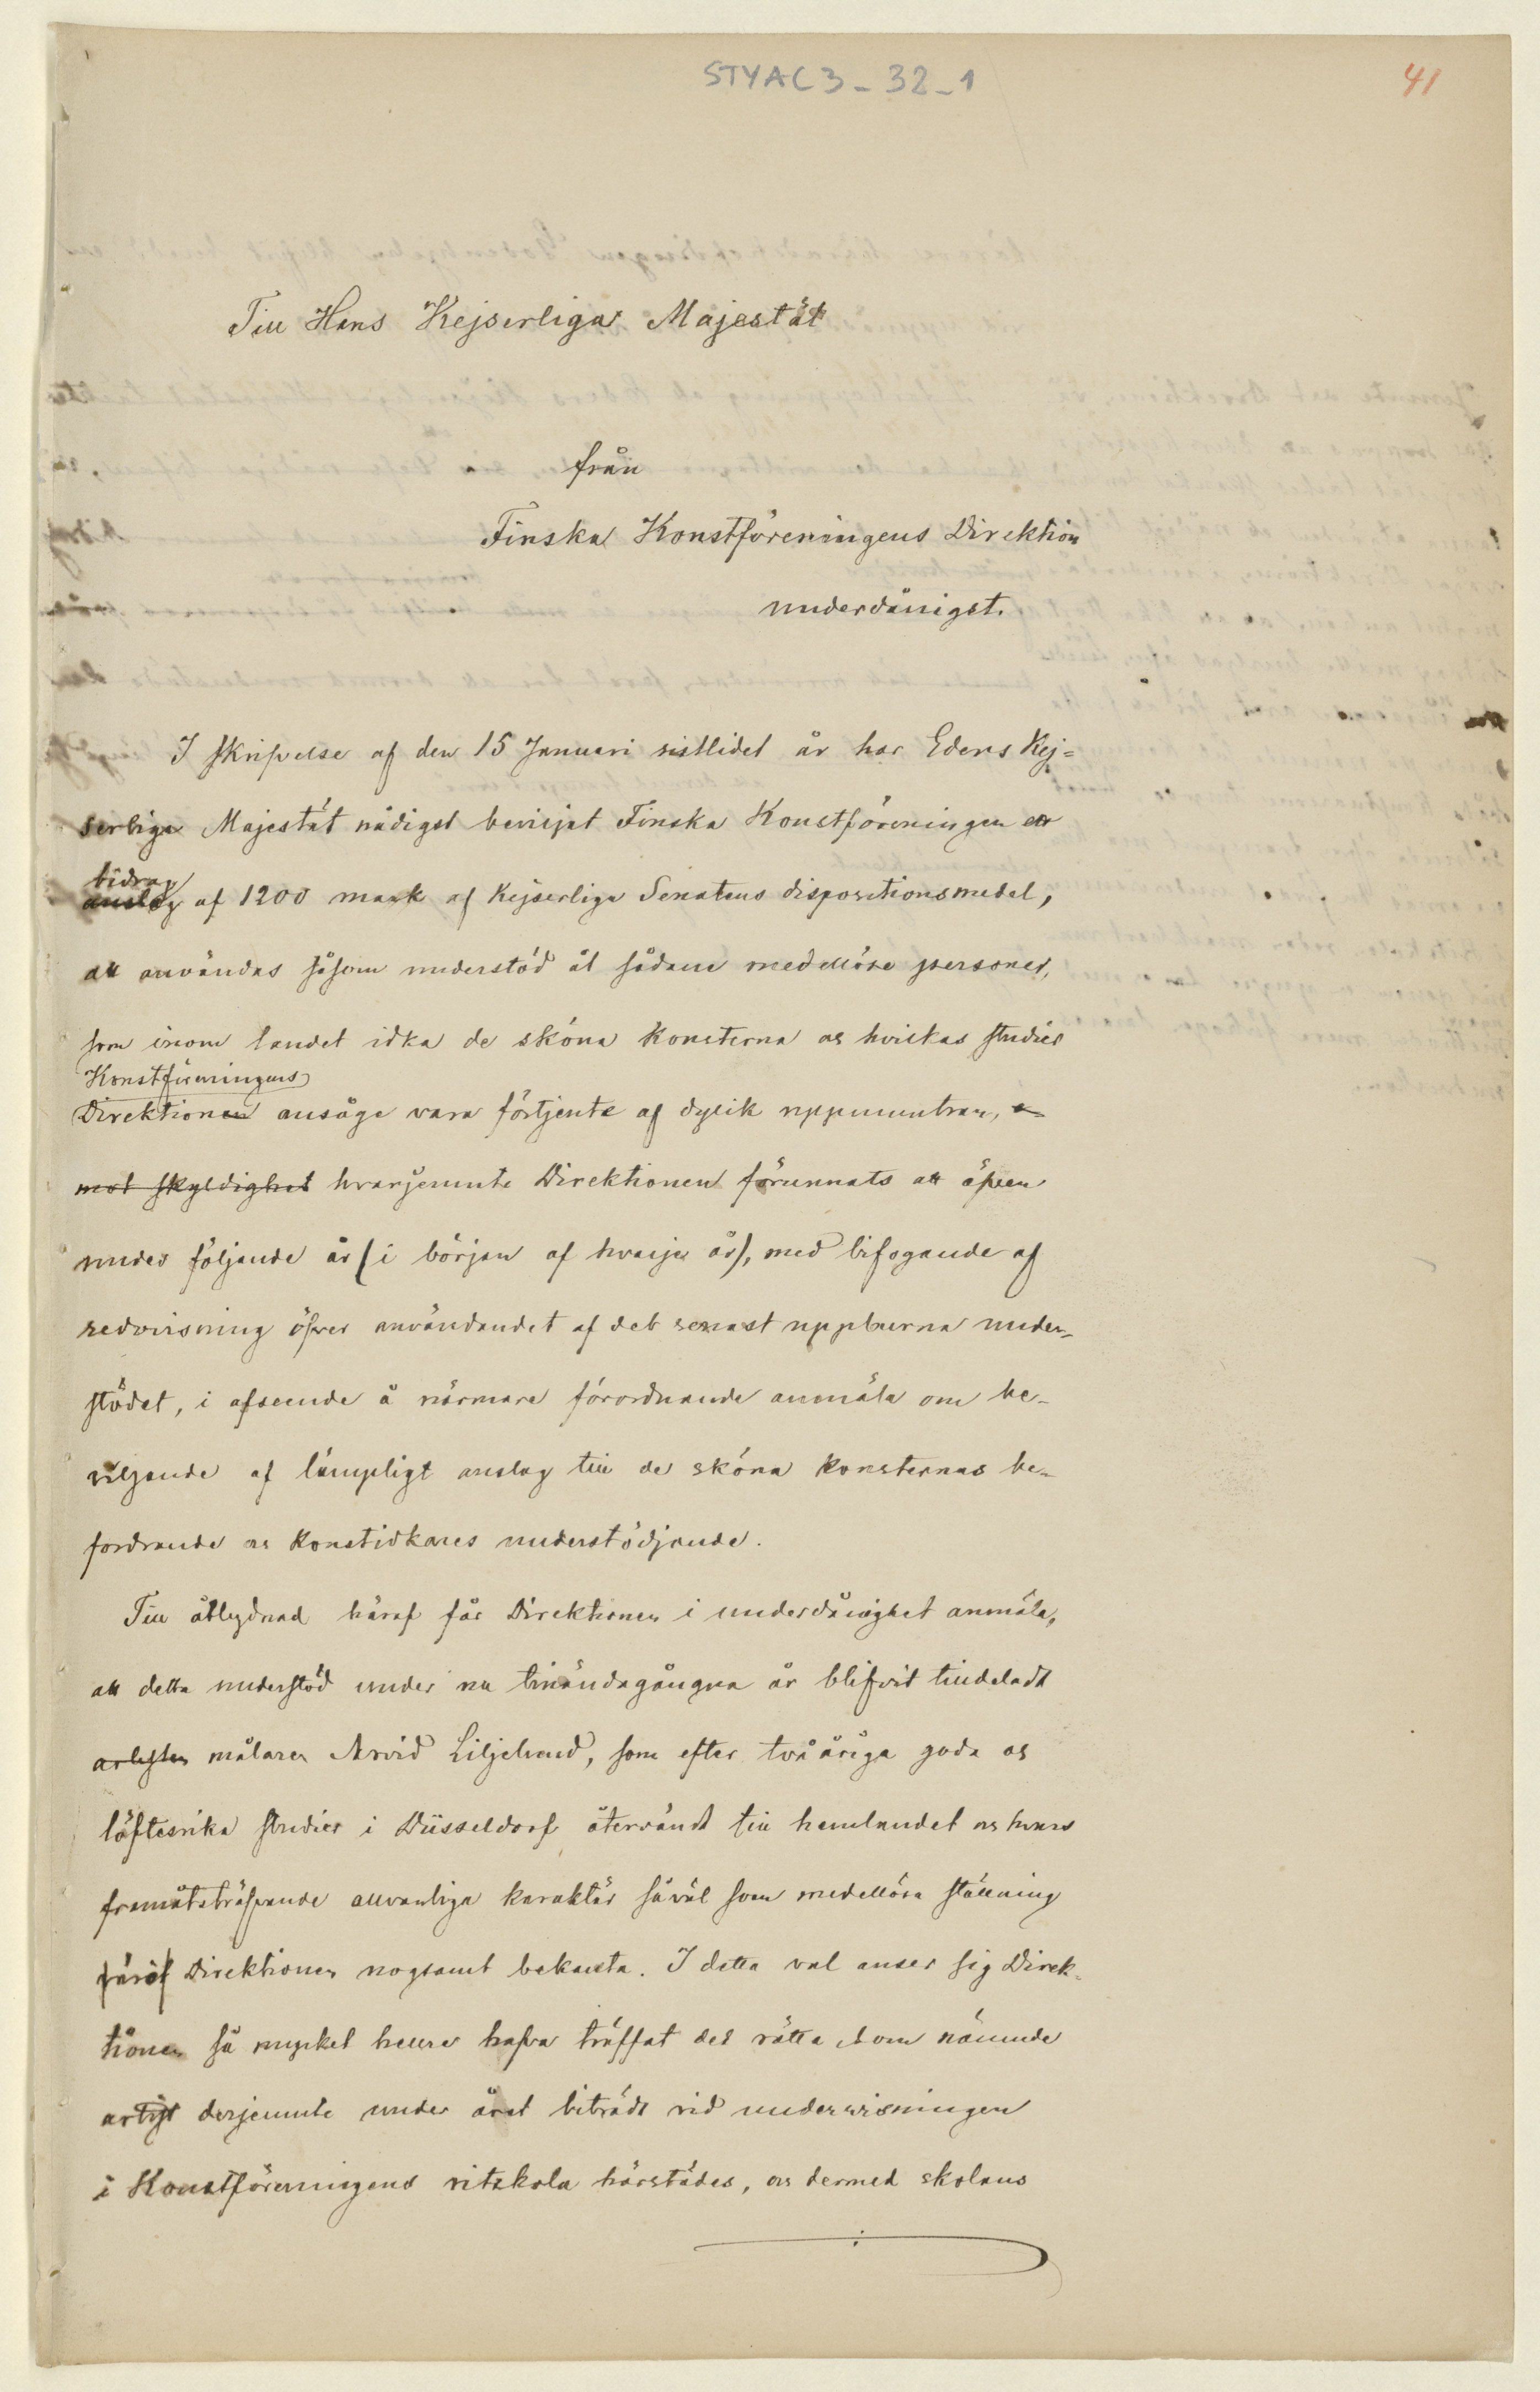 STYAC3_32_1
41
Till Hans Kejserliga Majestät
från
Finska Konstföreningens Direktion
underdånigst.
I skrifvelse af den 15 Januari sistlidet år har Eders Kej-
serliga Majestät nådigst beviljat Finska Konstföreningen ett
bidrag
anslag af 1200 mark af Kejserliga Senatens dispositionsmedel,
att användas såsom understöd åt sådane medellösa personer,
som inom landet idka de sköna konsterna och hvilkas studier
Konstföreningens
Direktionen ansåge vara förtjente af dylik uppmuntran,
mot skyldighet hvarjemnte Direktionen förunnats att äfven
under följande år (i början af hvarje år), med bifogande af
redovisning öfver användandet af det senast uppburna under-
stödet, i afseende å närmare förordnande anmäla om be-
viljande af lämpligt anslag till de sköna konsternas be-
fordrande och konstidkares understödjande.
Till åtlydnad häraf får Direktionen i underdånighet anmäla,
att detta understöd under nu tilländagångna år blifvit tilldeladt
artisten målaren Arvid Liljelund, som efter tvååriga goda och
löftesrika studier i Düsseldorf återvändt till hemlandet och hvars
framåtsträfvande allvarliga karaktär såväl som medellösa ställning
äro Direktionen nogsamt bekanta. I detta val anser sig Direk-
tionen så mycket hellre hafva träffat det rätta som nämnde
artist derjemnte under året biträdt vid undervisningen
i Konstföreningens ritskola härstädes, och dermed skolans